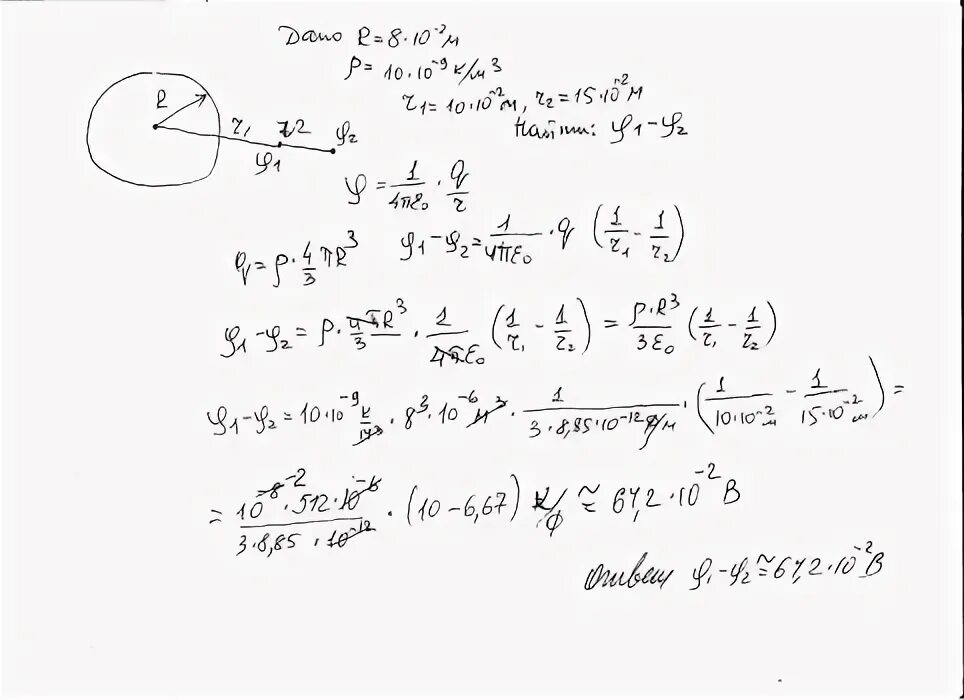 Дано R = 8·10⁻² м
ρ = 10·10⁻⁹ к/м³
r₁ = 10·10⁻² м, r₂ = 15·10⁻² м
Найти: φ1 – φ2
R
r₁ r2 φ₂
φ1
φ = 1/4πε₀ · q/r
q = ρ·4/3 πR³
φ1 – φ2 = 1/4πε₀ · q (1/r₁ – 1/r₂)
φ1 – φ2 = ρ· 4πR³/3 · 1/4πε₀ (1/r₁ – 1/r₂) = ρ·R³/3ε₀ (1/r₁ – 1/r₂)
φ1 – φ2 = 10·10⁻⁹ к/м³ · 8³·10⁻⁶ м³ · 1/3·8,85·10⁻¹² ф/м · (1/10·10⁻² м – 1/15·10⁻² м) =
= 10⁻⁸ ⁻²·512·10⁻⁶/3·8,85·10⁻¹² · (10 – 6,67) к/ф ≈ 64,2·10⁻² В
Ответ φ₁ – φ₂ ≈ 64,2·10⁻² В